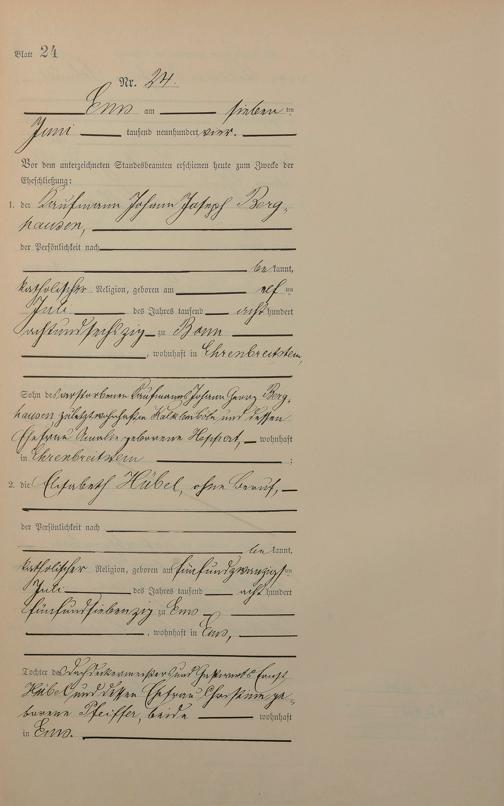 Blatt 24
Nr. 24.
Ems am sieben ten
Juni tausend neunhundert vier.
Vor dem unterzeichneten Standesbeamten erschienen heute zum Zwecke der
Eheschließung:
1. der Kaufmann Johann Joseph Berg-
hausen,
der Persönlichkeit nach
be kannt,
katholischer Religion, geboren am elf ten
Juli des Jahres tausend acht hundert
achtundsechszig zu Bonn
, wohnhaft in Ehrenbreitstein,
Sohn des verstorbenen Kaufmanns Johann Georg Berg-
hausen, zuletzt wohnhaft in und dessen
Ehefrau Amalie geborene wohnhaft
in Ehrenbreitstein ;
2. die Elisabeth Hübel, ohne Beruf,
der Persönlichkeit nach
be kannt,
katholischer Religion, geboren am fünfundzwanzigsten
Juli des Jahres tausend acht hundert
fünfundsiebenzig zu Ems
, wohnhaft in Ems,
Tochter des Dachdeckermeisters und Ernst
Hübel und dessen Ehefrau Christine ge-
borene Pfeiffer, beide wohnhaft
in Ems.